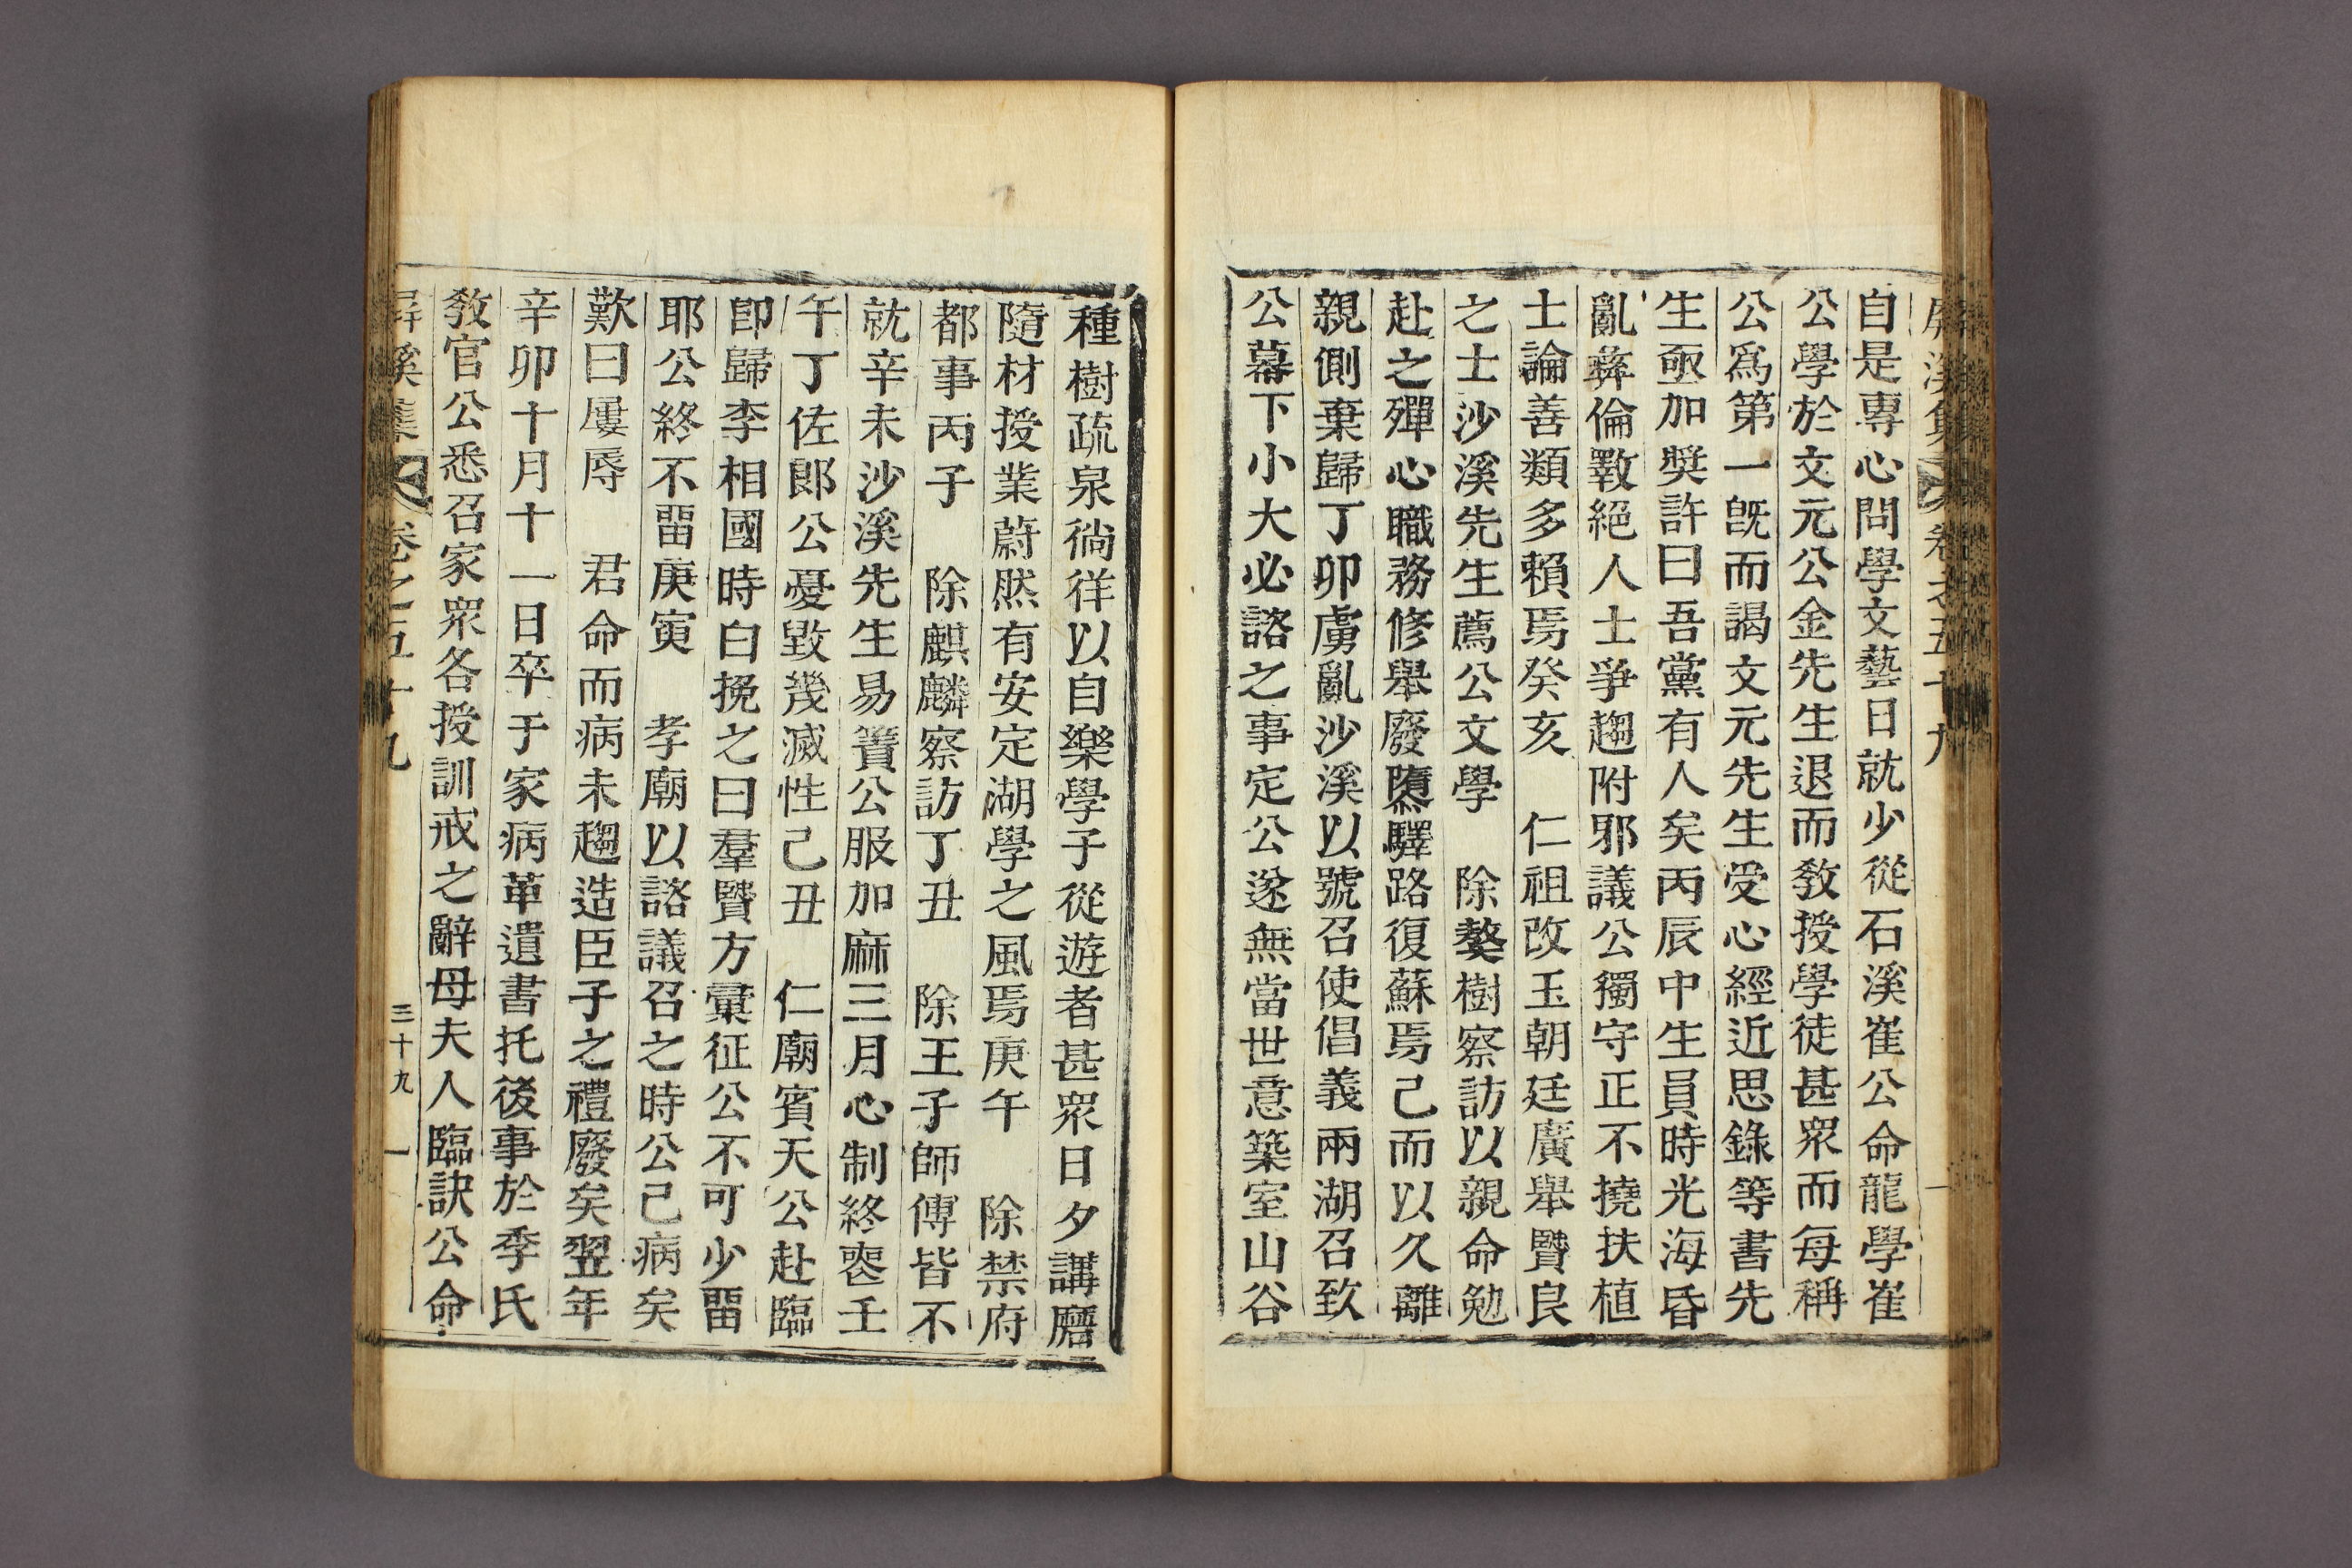 屛溪集 卷之五十九
自是專心問學文藝日就少從石溪崔公命龍學崔
公學於文元公金先生退而敎授學徒甚眾而每稱
公爲第一旣而謁文元先生受心經近思錄等書先
生亟加奬許曰吾黨有人矣丙辰中生員時光海昏
亂彝倫斁絕人士爭趨附邪議公獨守正不撓扶植
士論善類多賴焉癸亥 仁祖改玉朝廷廣舉賢良
之士沙溪先生薦公文學 除獒樹察訪以親命勉
赴之殫心職務修舉廢墮驛路復蘇焉已而以久離
親側棄歸丁卯虜亂沙溪以號召使倡義兩湖召致
公幕下小大必諮之事定公遂無當世意築室山谷
種樹疏泉徜徉以自樂學子從遊者甚眾日夕講磨
隨材授業蔚然有安定湖學之風焉庚午 除禁府
都事丙子 除麒麟察訪丁丑 除王子師傅皆不
就辛未沙溪先生易簀公服加麻三月心制終喪壬
午丁佐郎公憂毀幾滅性己丑 仁廟賓天公赴臨
卽歸李相國時白挽之曰羣賢方彙征公不可少留
耶公終不留庚寅 孝廟以諮議召之時公已病矣
歎曰屢辱 君命而病未趨造臣子之禮廢矣翌年
辛卯十月十一日卒于家病革遺書托後事於季氏
敎官公悉召家眾各授訓戒之辭母夫人臨訣公命
屛溪集 卷之五十九 三十九